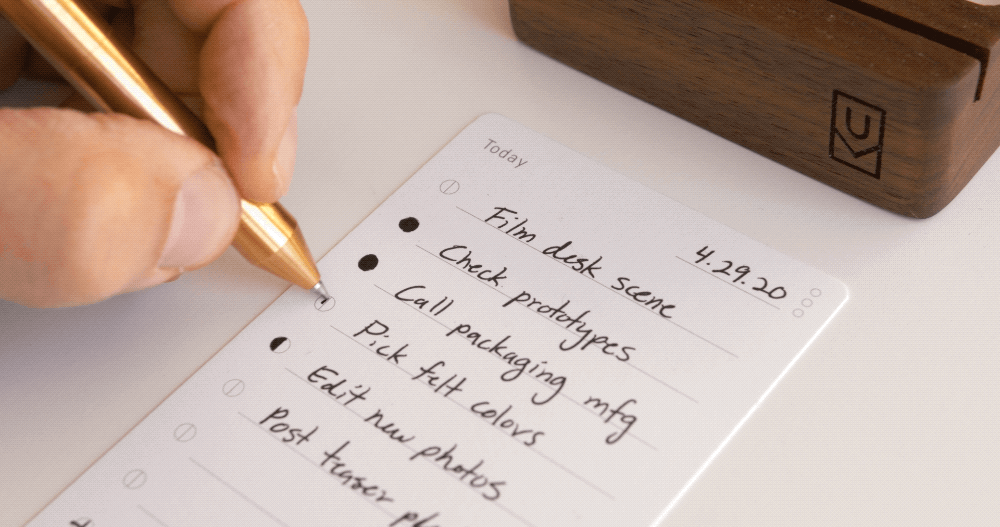 Today
4.29.20
Film desk scene
Check prototypes
Call packaging mfg
Pick felt colors
Edit new photos
Post teaser
U